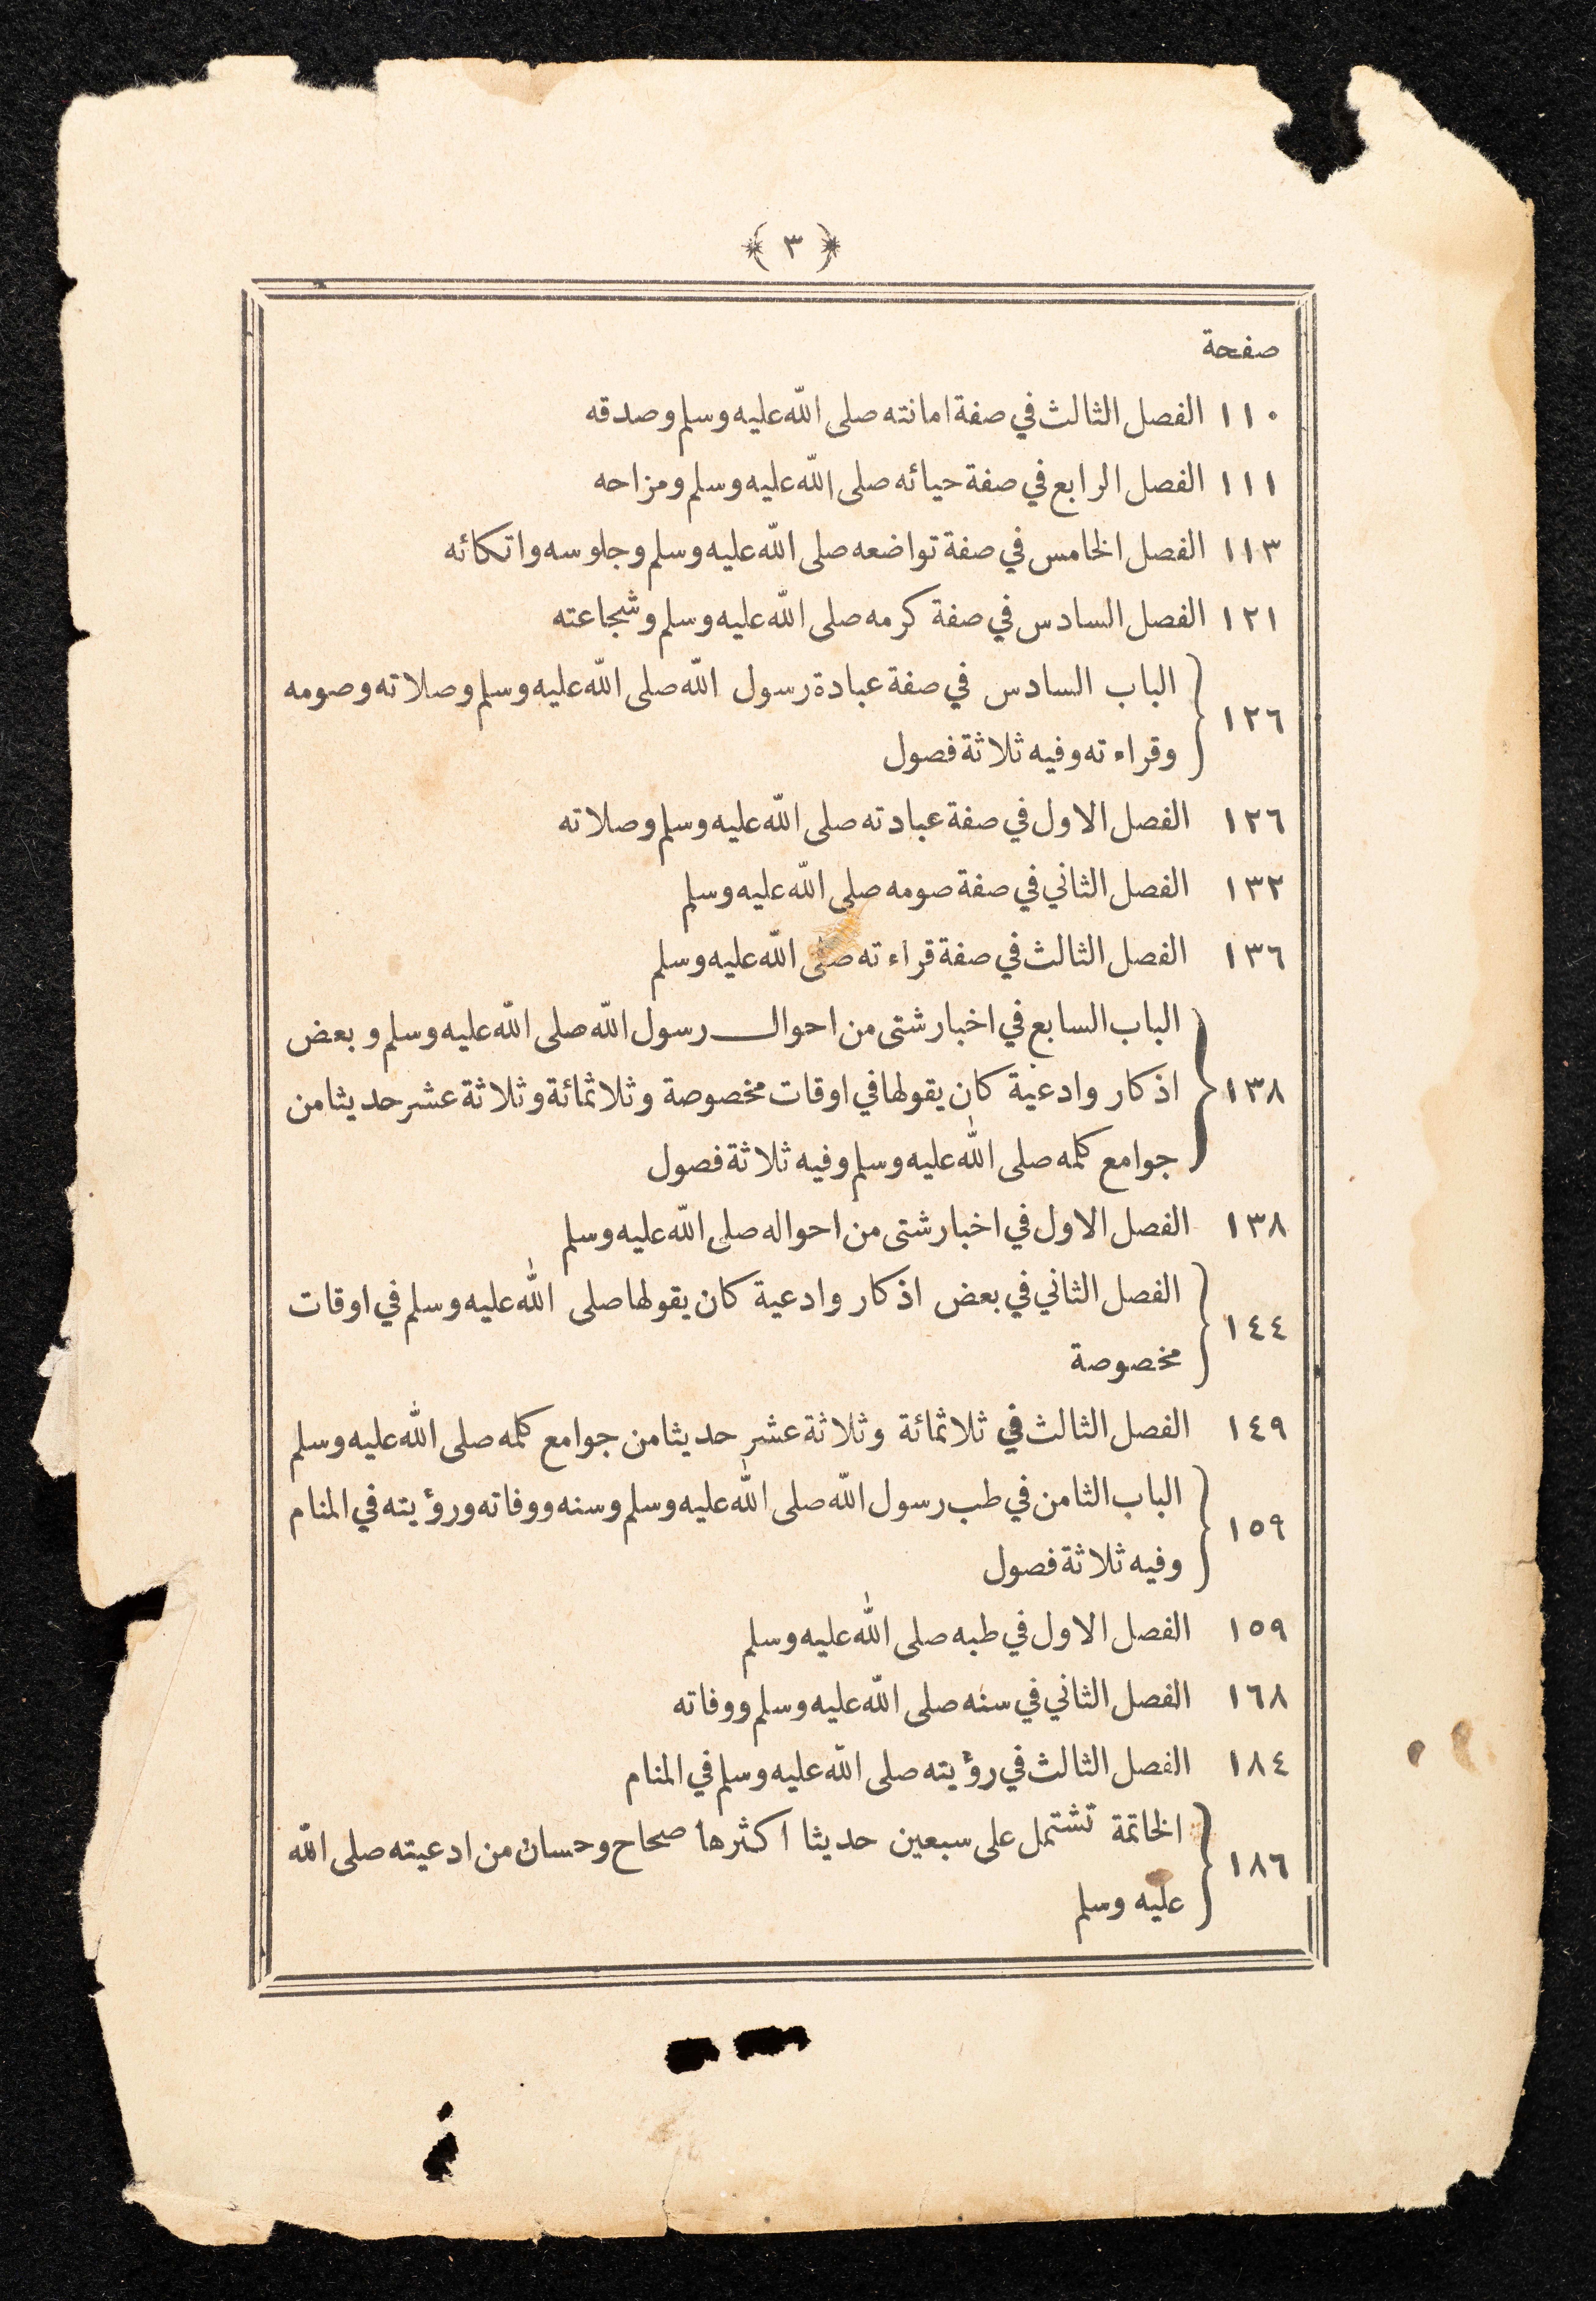 ﴿ ٣ ﴾
صفحة
١١٠ الفصل الثالث في صفة امانته صلى الله عليه وسلم وصدقه
١١١ الفصل الرابع في صفة حيائه صلى الله عليه وسلم ومزاحه
١١٣ الفصل الخامس في صفة تواضعه صلى الله عليه وسلم وجلوسه واتكائه
١٢١ الفصل السادس في صفة كرمه صلى الله عليه وسلم وشجاعته
١٢٦ الباب السادس في صفة عبادة رسول الله صلى الله عليه وسلم وصلاته وصومه
وقراءته وفيه ثلاثة فصول
١٢٦ الفصل الاول في صفة عبادته صلى الله عليه وسلم وصلاته
١٣٢ الفصل الثاني في صفة صومه صلى الله عليه وسلم
١٣٦ الفصل الثالث في صفة قراءته صلى الله عليه وسلم
الباب السابع في اخبار شتى من احوال رسول الله صلى الله عليه وسلم وبعض
١٣٨ اذكار وادعية كان يقولها في اوقات مخصوصة وثلاثمائة وثلاثة عشر حديثا من
جوامع كلمه صلى الله عليه وسلم وفيه ثلاثة فصول
١٣٨ الفصل الاول في اخبار شتى من احواله صلى الله عليه وسلم
١٤٤ الفصل الثاني في بعض اذكار وادعية كان يقولها صلى الله عليه وسلم في اوقات
مخصوصة
١٤٩ الفصل الثالث في ثلاثمائة وثلاثة عشر حديثا من جوامع كلمه صلى الله عليه وسلم
١٥٩ الباب الثامن في طب رسول الله صلى الله عليه وسلم وسنه ووفاته ورؤيته في المنام
وفيه ثلاثة فصول
١٥٩ الفصل الاول في طبه صلى الله عليه وسلم
١٦٨ الفصل الثاني في سنه صلى الله عليه وسلم ووفاته
١٨٤ الفصل الثالث في رؤيته صلى الله عليه وسلم في المنام
١٨٦ الخاتمة تشتمل على سبعين حديثا اكثرها صحاح وحسان من ادعيته صلى الله
عليه وسلم